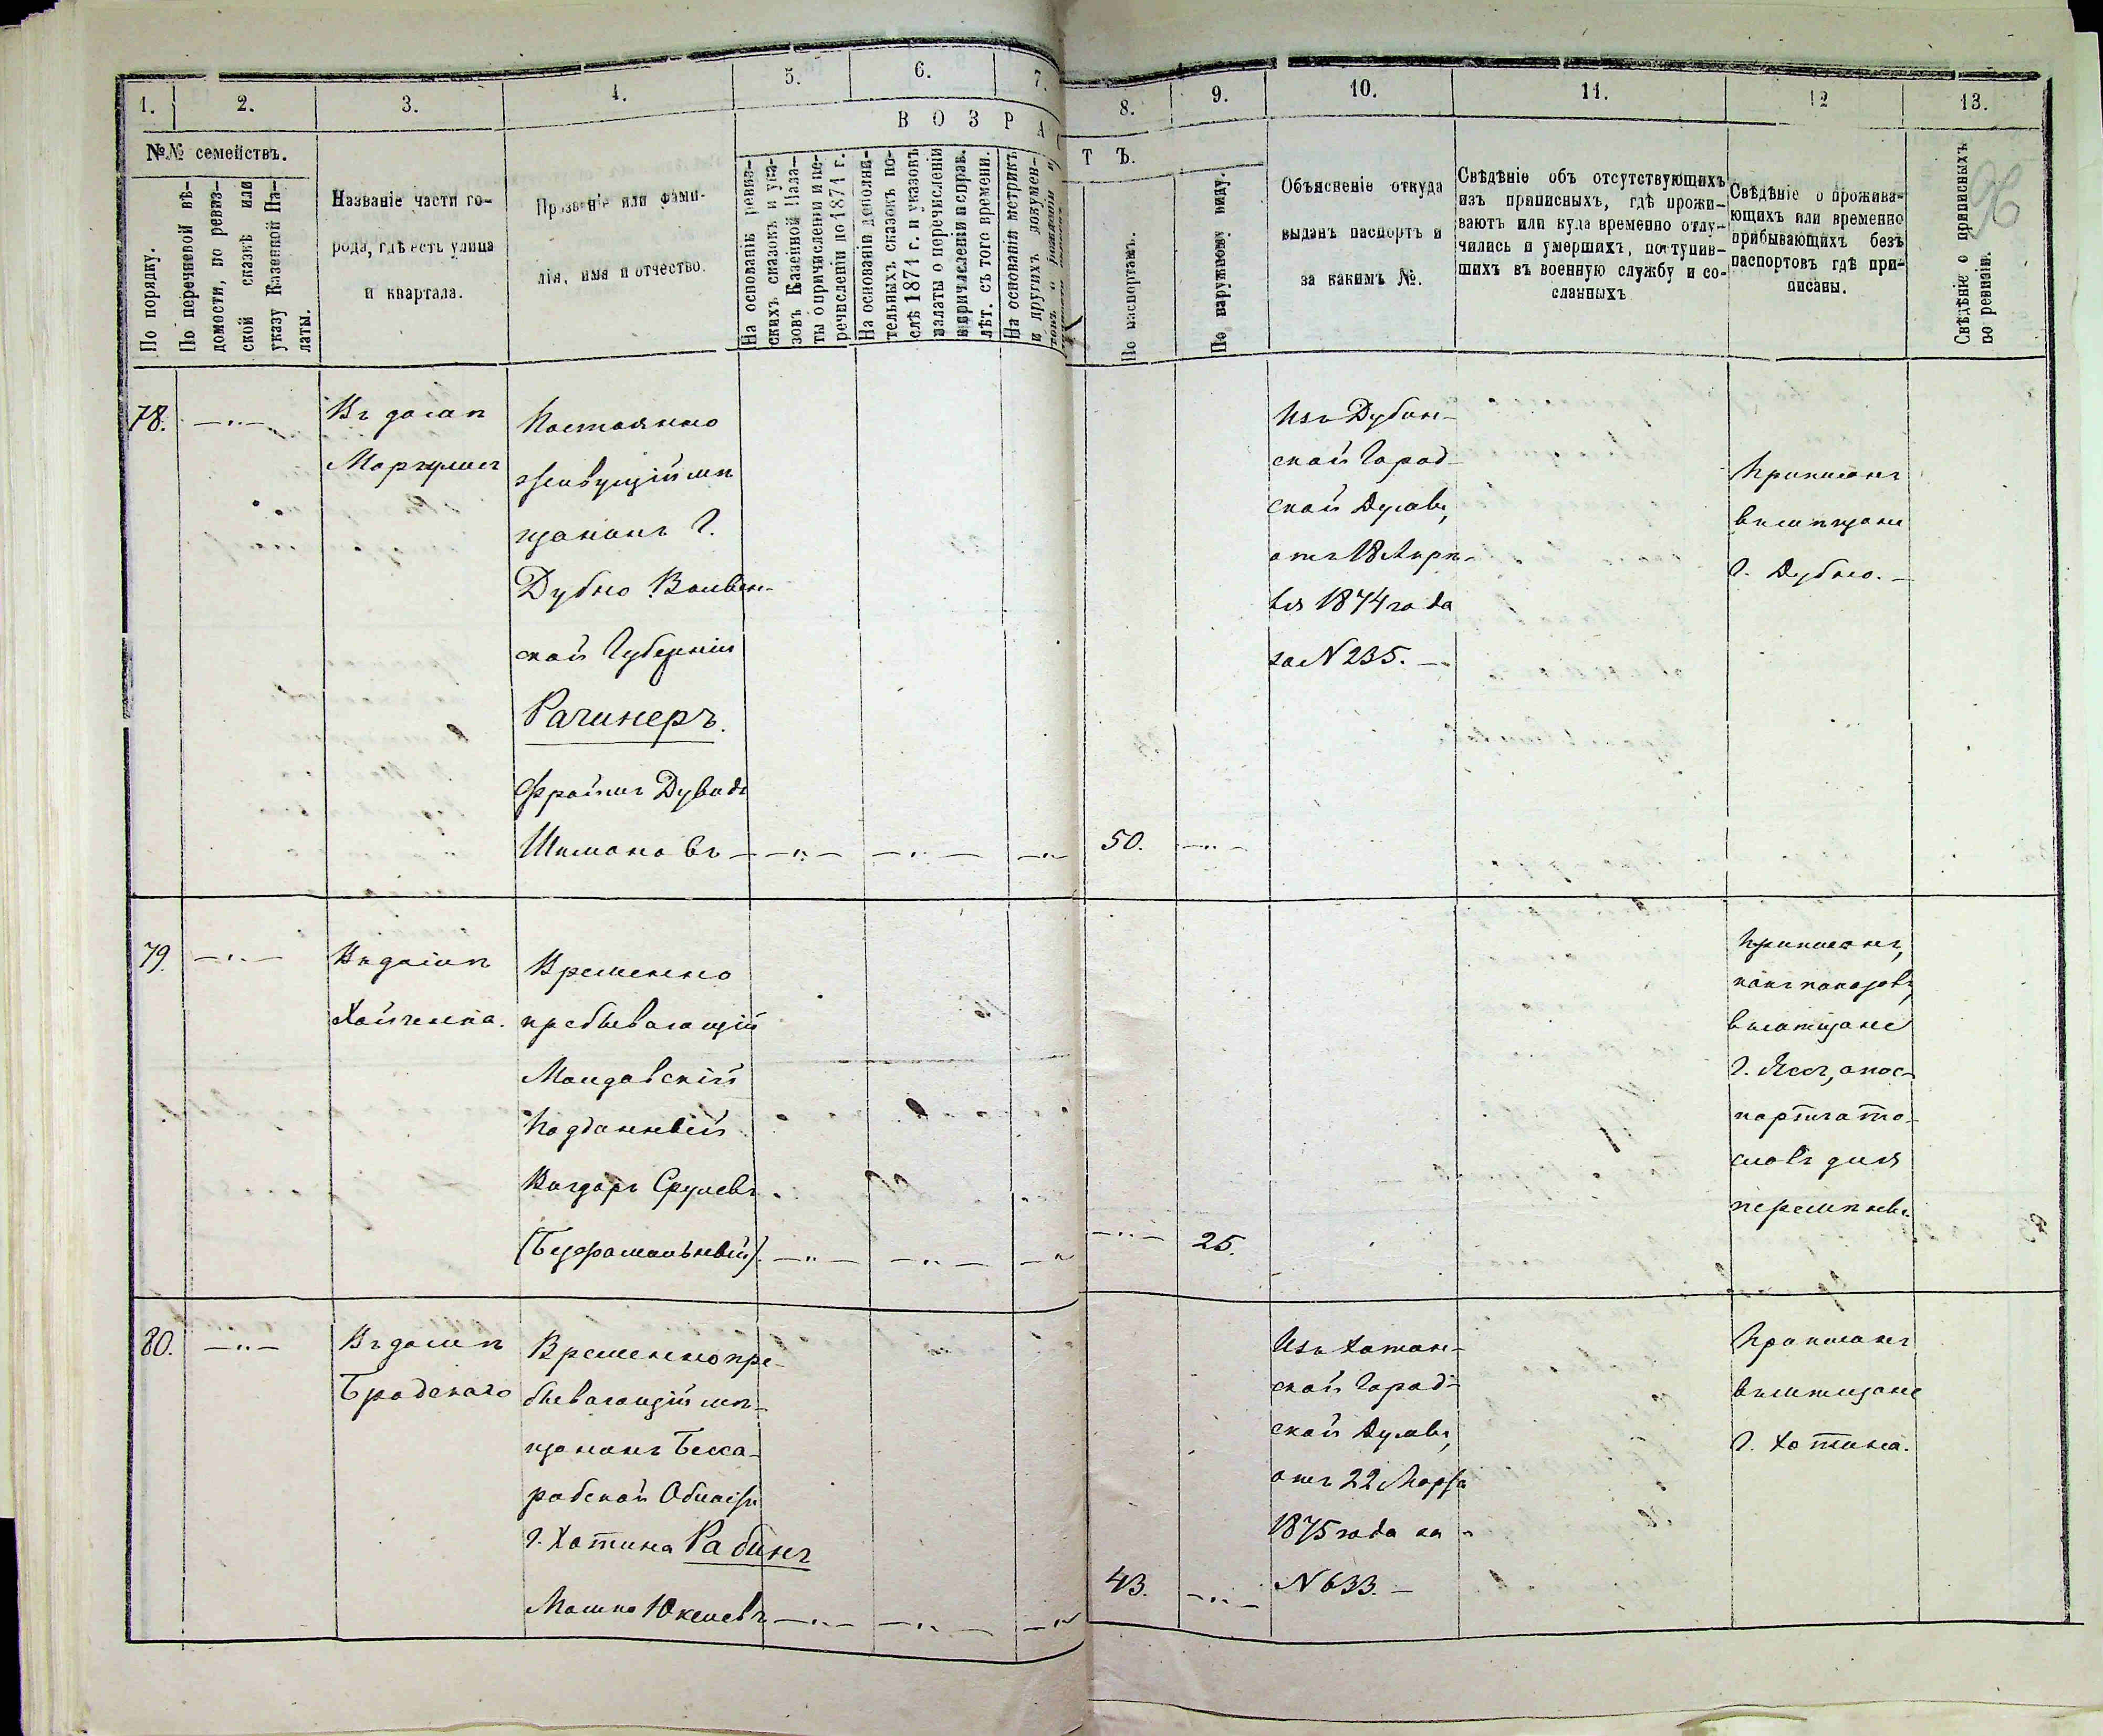 1. 2. 3. 4. 5. 6. 7. 8. 9. 10. 11. 12 13.
№№ семействъ.
В О З Р А
Т Ъ.
По порядку.
По перечневой вѣ-
домости, по ревиз-
ской сказкѣ или
указу Казенной Па-
латы.
Названіе части го-
рода, гдѣ есть улица
и квартала.
Прозваніе или фами-
лія, имя и отчество.
На основаніи ревиз-
скихъ сказокъ и ука-
зовъ Казенной Пала-
ты о причисленіи и пе-
речисленіи по 1871 г.
На основаніи дополни-
тельныхъ сказокъ по-
слѣ 1871 г. и указовъ
палаты о перечисленіи
и причисленіи исправ.
лѣт. съ того времени.
На основаніи метрикъ
и другихъ докумен-
По паспортамъ.
По наружному виду.
Объясненіе откуда
выданъ паспортъ и
за какимъ №.
Свѣдѣніе объ отсутствующихъ
изъ приписныхъ, гдѣ прожи-
ваютъ или куда временно отлу-
чились и умершихъ, поступив-
шихъ въ военную службу и со-
сланныхъ
Свѣдѣніе о прожива-
ющихъ или временно
прибывающихъ безъ
паспортовъ гдѣ при-
писаны.
Свѣдѣніе о приписныхъ
по ревизіи.
96
78. —"—
Въ домѣ
Моргулисъ
Постоянно
живущій мѣ
щанинъ г.
Дубно Волын-
ской Губерніи
Рачинеръ.
Фроимъ Дувидъ
Шимановъ —"— —"— —"
50. —"—
Изъ Дубен-
ской Город-
ской Думы,
отъ 18 Апрѣ-
ля 1874 года
за № 235. —
Приписанъ
въ мѣщане
г. Дубно. —
79. —"—
Въ домѣ
Временно
пребывающій
Молдавскій
Подданный
Срулевъ
(Безфамильный). —"— —"— —"
—"— 25.
Приписанъ,
какъ показалъ,
въ мѣщане
г. Яссъ, а пас-
портъ ото-
слалъ для
перемѣны.
80. —"—
Въ домѣ
Бродскаго
Временно пре-
бывающій мѣ-
щанинъ Бесса-
рабской Области
г. Хотина Рабинъ
Мошко Юкелевъ —"— —"— —"
43. —"—
Изъ Хотин-
ской Город-
ской Думы,
отъ 22 Марта
1875 года за
№ 633. —
Приписанъ
въ мѣщане
г. Хотина.